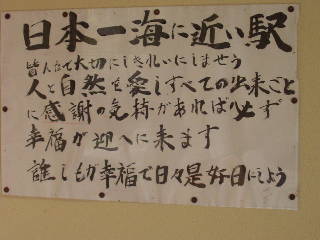 日本一海に近い駅
皆んなで大切にしきれいにしませう
人と自然を愛しすべての出来ごと
に感謝の気持があれば必ず
幸福が迎へに来ます
誰しもが幸福で日々是好日にしよう